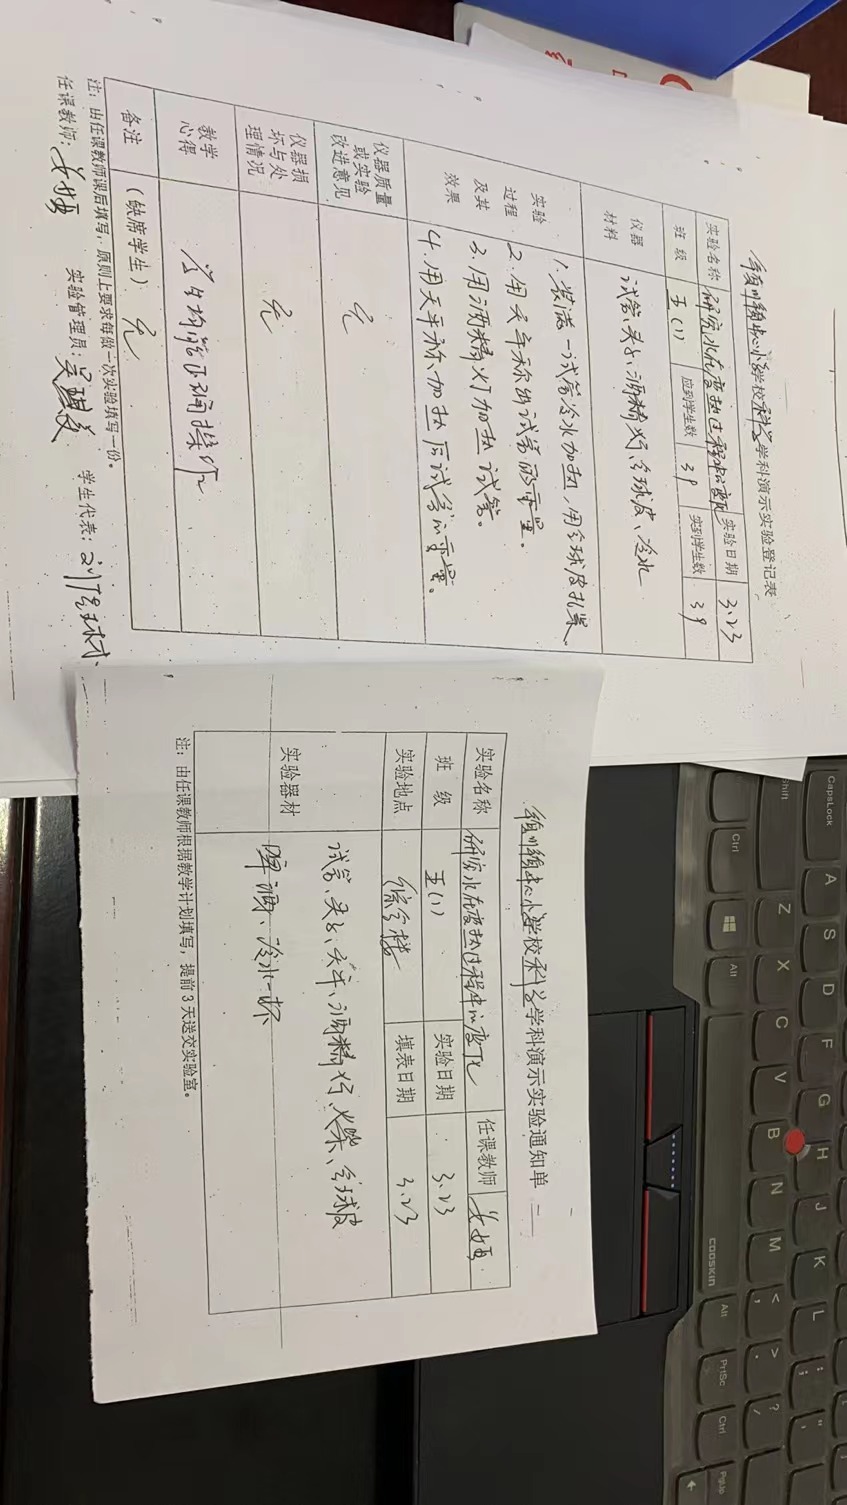 小学校科学学科演示实验登记表
实验名称 研究水在变热过程中的变化 实验日期 3.23
班 级 五(1) 应到学生数 39 实到学生数 39
仪器材料 试管、夹子、酒精灯、气球皮、冷水
实验过程及其效果
1.装满一试管冷水加热,用气球皮扎紧。
2.用天平称出试管的重量。
3.用酒精灯加热试管。
4.用天平称加热后试管的重量。
仪器质量或实验改进意见 无
仪器损坏与处理情况 无
教学心得 学生均能正确操作
备注 (缺席学生) 无
注:由任课教师课后填写,原则上要求每做一次实验填写一份。
任课教师: 实验管理员: 学生代表:
中心小学校科学学科演示实验通知单
实验名称 研究水在变热过程中的变化 任课教师
班 级 五(1) 实验日期 3.23
实验地点 综合楼 填表日期 3.23
实验器材 试管、夹子、天平、酒精灯、火柴、气球皮
啤酒、冷水一杯
注:由任课教师根据教学计划填写,提前3天送交实验室。
CapsLock A S D F G H J K L
Shift Z X C V B N M < , > . ? /
Ctrl Alt Alt PrtSc Ctrl PgUp
COOSKIN